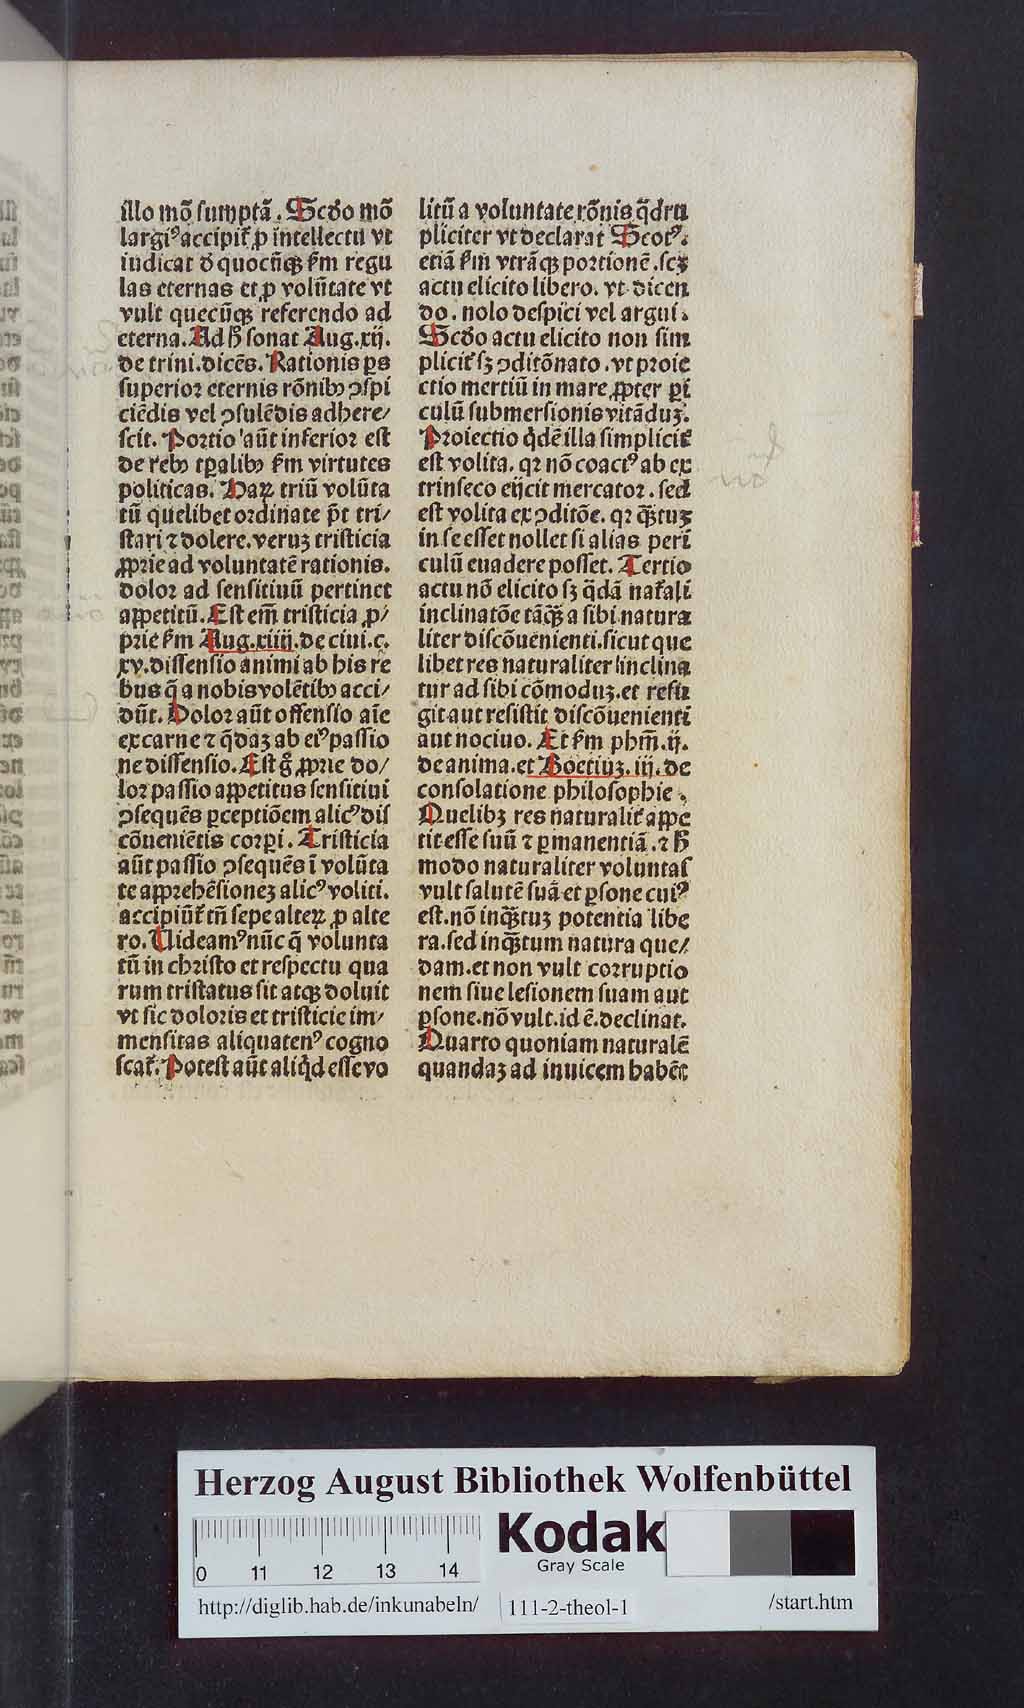 illo mō sumptā. Scd̄o mō
largiꝰ accipit᷑ ꝑ intellectu vt
iudicat d̄ quocūqꝫ ẜm regu
las eternas et ꝑ volūtate vt
vult quecūqꝫ referendo ad
eterna. Ad hͦ sonat Aug. xij.
de trini. dicēs. Rationis ꝑs
superior eternis rōnibꝰ ↄspi
ciēdis vel ↄsulēdis adhere/
scit. Portio aūt inferior est
de rebꝰ tꝑalibꝰ ẜm virtutes
politicas. Haꝝ triū volūta
tū quelibet ordinate pōt tri/
stari ⁊ dolere. veruꝫ tristicia
ꝓprie ad voluntatē rationis.
dolor ad sensitiuū pertinet
appetitū. Est em̄ tristicia ꝓ/
prie ẜm Aug. xiiij. de ciui. c.
xv. dissensio animi ab his re
bus q̄ a nobis volētibꝰ acci/
dūt. Dolor aūt offensio aīe
ex carne ⁊ q̄daꝫ ab eiꝰ passio
ne dissensio. Est gͦ ꝓprie do/
lor passio appetitus sensitiui
ↄsequēs ꝑceptiōem alicꝰ dis
cōueniētis corꝑi. Tristicia
aūt passio ↄsequēs ī volūta
te apprehēsioneꝫ alicꝰ voliti.
accipiūt᷑ tn̄ sepe alteꝝ ꝓ alte
ro. Uideamꝰ nūc q̄ volunta
tū in christo et respectu qua
rum tristatus sit atqꝫ doluit
vt sic doloris et tristicie im/
mensitas aliquatenꝰ cogno
scat᷑. Potest aūt aliq̇d esse vo
litū a voluntate rōnis q̄dru
pliciter vt declarat Scotꝰ.
etiā ẜm vtrāqꝫ portionē. scꝫ
actu elicito libero. vt dicen
do. nolo despici vel argui.
Scd̄o actu elicito non sim
plicit᷑ sꝫ ↄditōnato. vt proie
ctio mertiū in mare ꝓpter ꝑi
culū submersionis vitāduꝫ.
Proiectio q̇dē illa simplicit᷑
est volita. qꝛ nō coactꝰ ab ex
trinseco eijcit mercator. sed
est volita ex ↄditōe. qꝛ q̄ꝫtuꝫ
in se esset nollet si alias peri
culū euadere posset. Tertio
actu nō elicito sꝫ q̄dā nat᷑ali
inclinatōe tāq̄ꝫ a sibi natura
liter discōuenienti. sicut que
libet res naturaliter inclina
tur ad sibi cōmoduꝫ. et refu
git aut resistit discōuenienti
aut nociuo. Et ẜm phm̄. ij.
de anima. et Boetiuꝫ. iij. de
consolatione philosophie.
Quelibꝫ res naturalit᷑ appe
tit esse suū ⁊ ꝑmanentiā. ⁊ hͦ
modo naturaliter voluntas
vult salutē suā et ꝑsone cuiꝰ
est. nō inq̄ꝫtuꝫ potentia libe
ra. sed inq̄ꝫtum natura que/
dam. et non vult corruptio
nem siue lesionem suam aut
ꝑsone. nō vult. id ē. declinat.
Quarto quoniam naturalē
quandaꝫ ad inuicem habēt
Herzog August Bibliothek Wolfenbüttel
0 11 12 13 14
Kodak
Gray Scale
http://diglib.hab.de/inkunabeln/ 111-2-theol-1 /start.htm